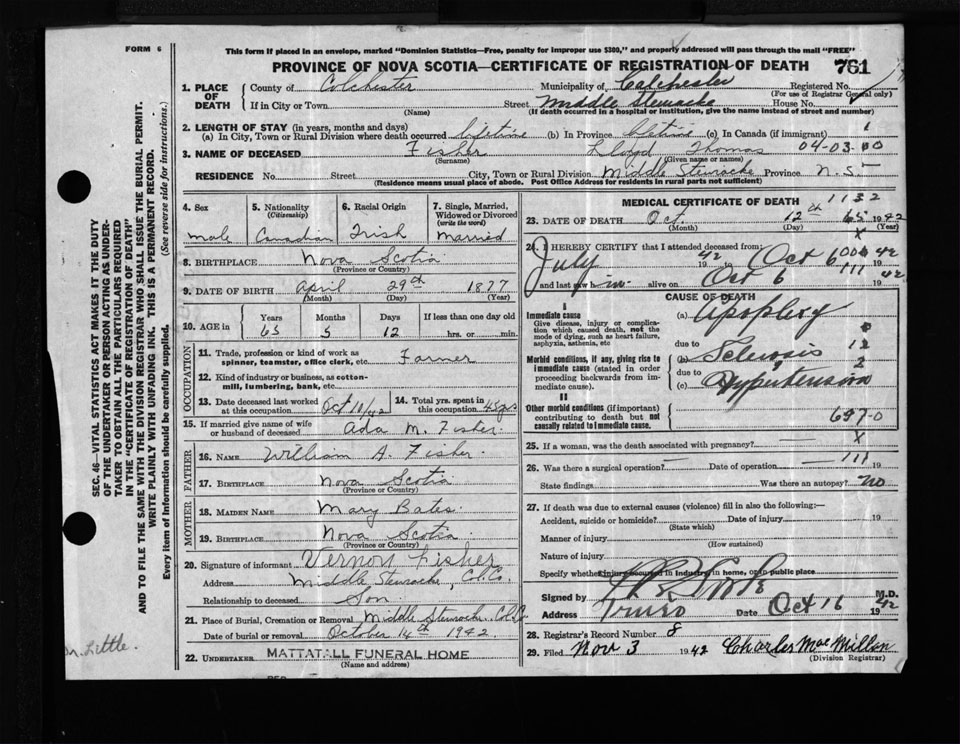 FORM 6
This form if placed in an envelope, marked "Dominion Statistics—Free, penalty for improper use $300," and properly addressed will pass through the mail "FREE"
PROVINCE OF NOVA SCOTIA—CERTIFICATE OF REGISTRATION OF DEATH 761
1. PLACE OF DEATH County of Colchester Municipality of Colchester Registered No.
(For use of Registrar General only)
If in City or Town Street Middle Stewiacke House No.
(Name) (If death occurred in a hospital or institution, give the name instead of street and number)
2. LENGTH OF STAY (in years, months and days)
(a) In City, Town or Rural Division where death occurred lifetime (b) In Province lifetime (c) In Canada (if immigrant) 1
3. NAME OF DECEASED Fisher Lloyd Thomas 04-03-00
(Surname) (Given name or names)
RESIDENCE No. Street City, Town or Rural Division Middle Stewiacke Province N.S.
(Residence means usual place of abode. Post Office Address for residents in rural parts not sufficient)
4. Sex 5. Nationality (Citizenship) 6. Racial Origin 7. Single, Married, Widowed or Divorced (write the word)
male Canadian Irish Married
8. BIRTHPLACE Nova Scotia
(Province or Country)
9. DATE OF BIRTH April 29th 1877
(Month) (Day) (Year)
10. AGE in Years Months Days If less than one day old
65 5 12 hrs. or min.
OCCUPATION
11. Trade, profession or kind of work as spinner, teamster, office clerk, etc. Farmer
12. Kind of industry or business, as cotton-mill, lumbering, bank, etc.
13. Date deceased last worked at this occupation Oct 10/42 14. Total yrs. spent in this occupation 45 yrs
15. If married give name of wife or husband of deceased Ada M. Fisher.
FATHER
16. NAME William A. Fisher.
17. BIRTHPLACE Nova Scotia
(Province or Country)
MOTHER
18. MAIDEN NAME Mary Bates.
19. BIRTHPLACE Nova Scotia
(Province or Country)
20. Signature of informant Vernon Fisher
Address Middle Stewiacke, Col. Co.
Relationship to deceased Son
21. Place of Burial, Cremation or Removal Middle Stewiacke. Col. Co.
Date of burial or removal October 14th 1942.
22. UNDERTAKER MATTATALL FUNERAL HOME
(Name and address)
MEDICAL CERTIFICATE OF DEATH 1132
23. DATE OF DEATH Oct. 12th 65 1942
(Month) (Day) (Year)
x
24. I HEREBY CERTIFY that I attended deceased from:
July 42 to Oct 6 000 1942
and last saw him alive on Oct 6 111 42
CAUSE OF DEATH
I
Immediate cause (a) Apoplexy
Give disease, injury or complication which caused death, not the mode of dying, such as heart failure, asphyxia, asthenia, etc
due to 12
Morbid conditions, if any, giving rise to immediate cause (stated in order proceeding backwards from immediate cause).
(b) Sclerosis
due to 2
(c) Hypertension
II
Other morbid conditions (if important) contributing to death but not causally related to immediate cause. 697-0
25. If a woman, was the death associated with pregnancy? x
26. Was there a surgical operation? — Date of operation — 111 19
State findings Was there an autopsy? no
27. If death was due to external causes (violence) fill in also the following:—
Accident, suicide or homicide? Date of injury 19
(State which)
Manner of injury
(How sustained)
Nature of injury
Specify whether injury occurred in industry, in home, or in public place
Signed by M.D.
Address Truro Date Oct 16 1942
28. Registrar's Record Number 8
29. Filed Nov 3 1942 Charles MacMillan
(Division Registrar)
SEC. 46—VITAL STATISTICS ACT MAKES IT THE DUTY
OF THE UNDERTAKER OR PERSON ACTING AS UNDER-
TAKER TO OBTAIN ALL THE PARTICULARS REQUIRED
IN THE "CERTIFICATE OF REGISTRATION OF DEATH"
AND TO FILE THE SAME WITH THE DIVISION REGISTRAR WHO SHALL ISSUE THE BURIAL PERMIT.
WRITE PLAINLY WITH UNFADING INK. THIS IS A PERMANENT RECORD.
Every item of Information should be carefully supplied. (See reverse side for instructions.)
Little.